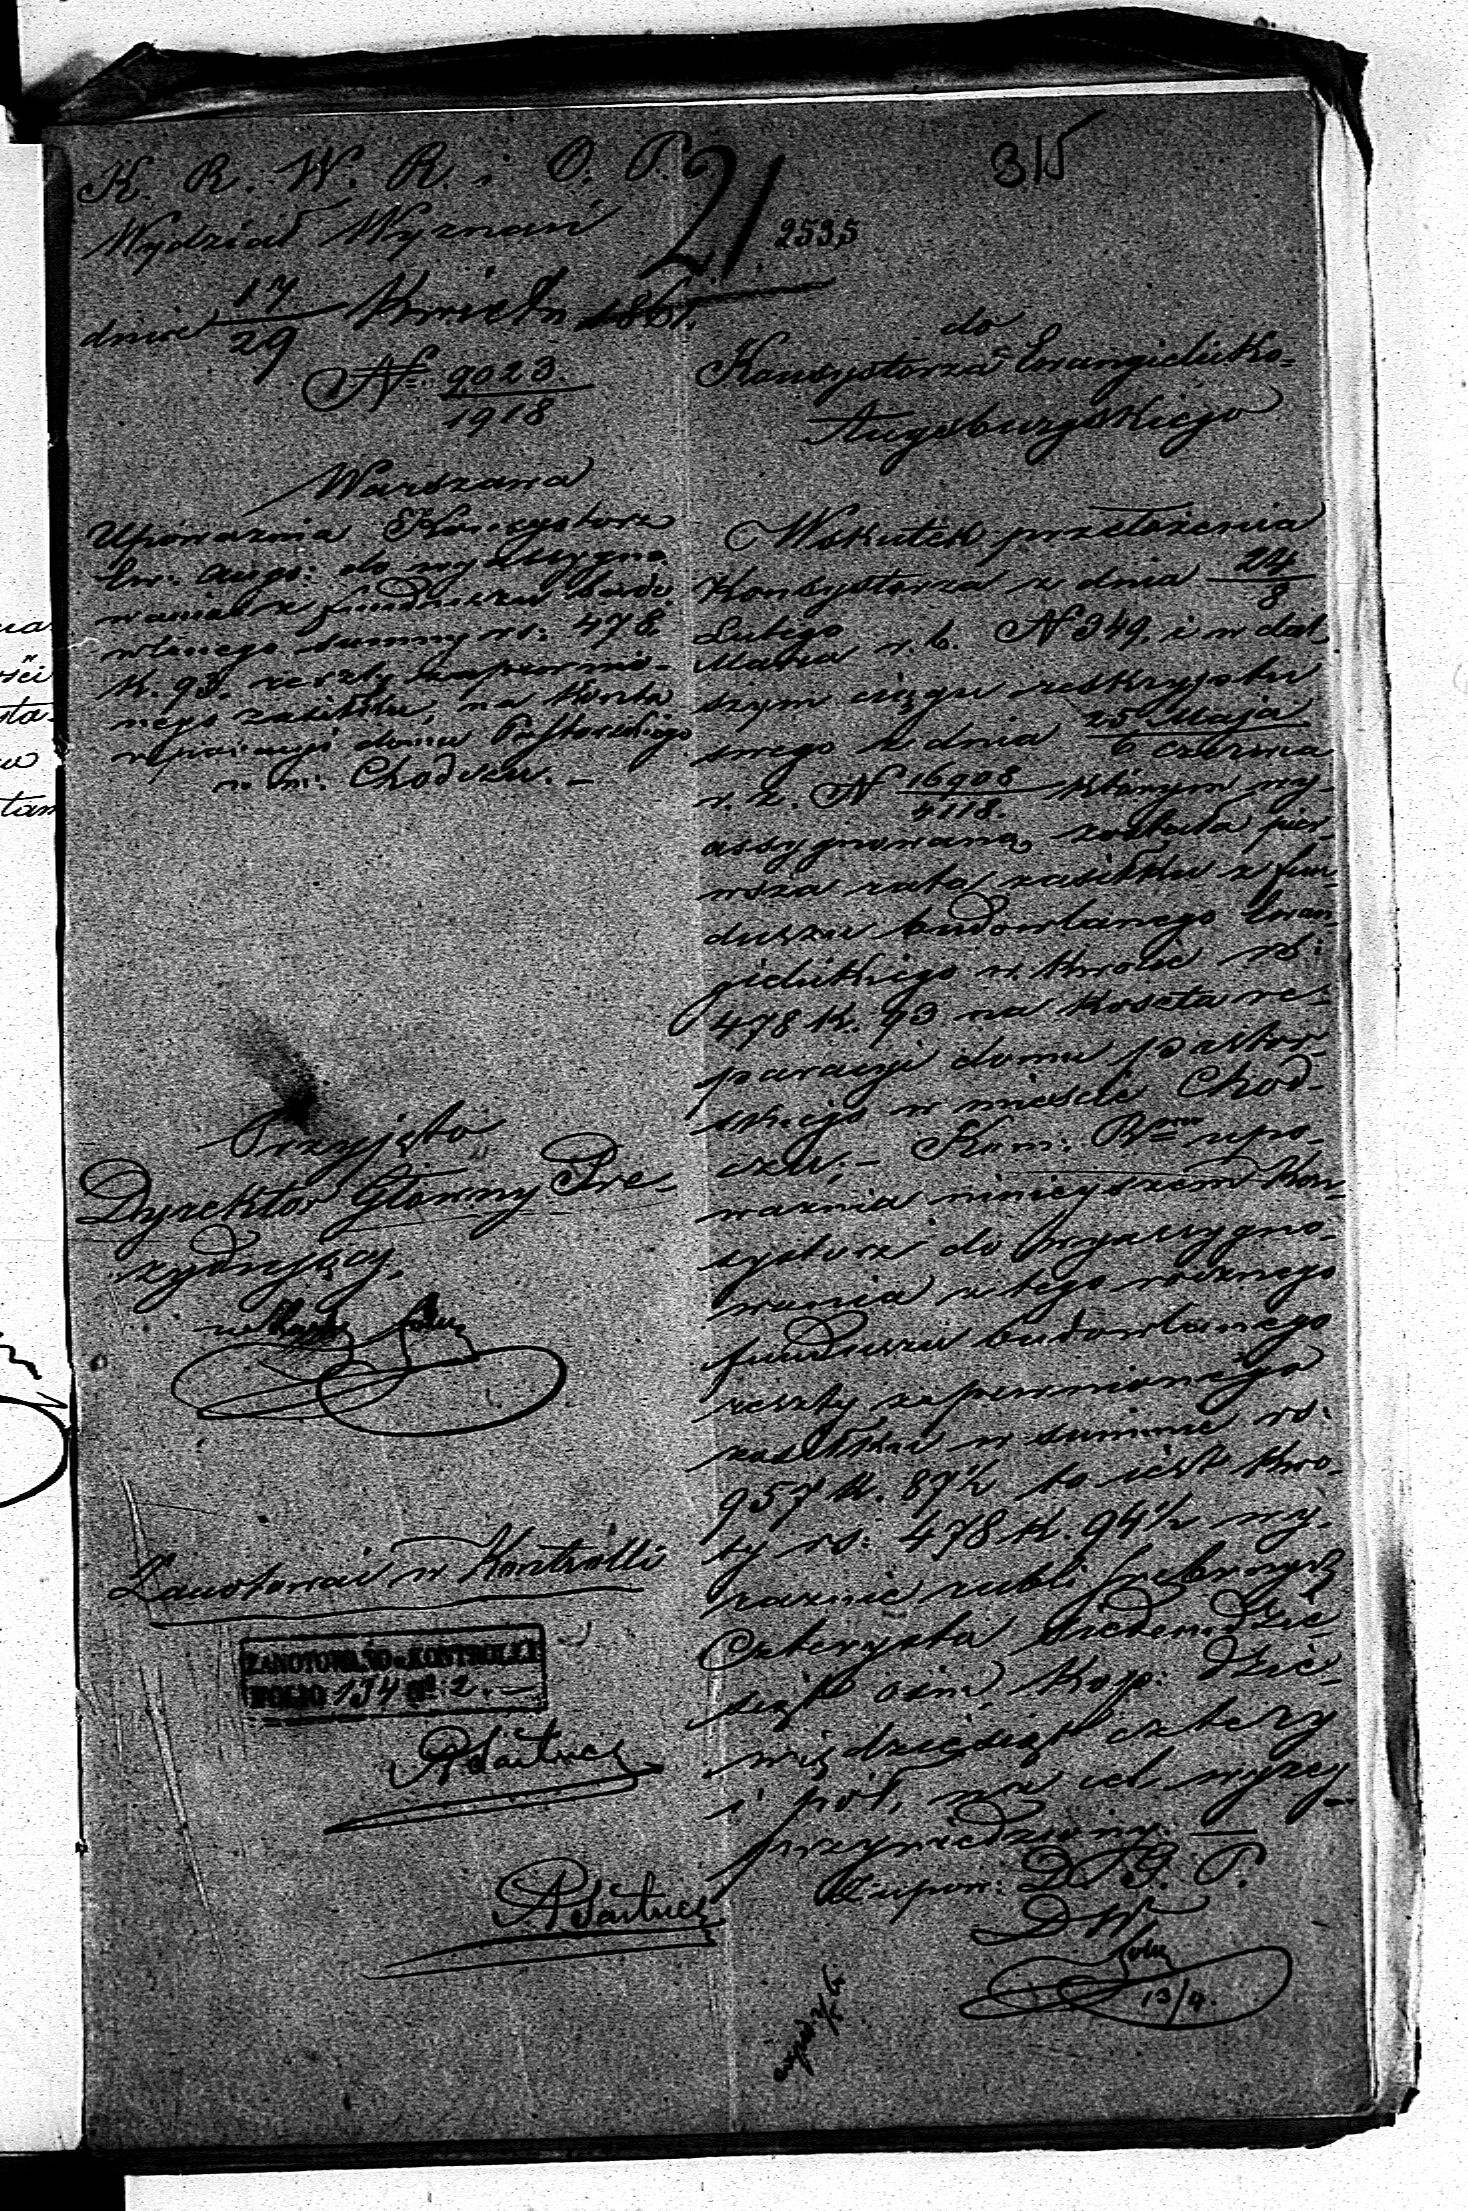 K. R. W. R. i O. P.
Wydział Wyznań
dnia 17/29 Kwietn 1861.
No 9023/1918
Warszawa
Upoważnia Konsystorz
Ew: Augs: do wyassygno-
wania z funduszu budo-
wlanego summy rs: 478
k. 93. reszty zapewnio-
nego zasiłku, na koszta
reparacyi domu Pastorskiego
w m: Chodczu. –
Przyjęto
Dyrektor Główny Pre-
zydujący,
Zanotować w Kontrolli
ZANOTOWANO w KONTROLLI
FOLIO 134 No: 2. –
21
2535
315
do
Konsystorza Ewangielicko-
Augsburgskiego
Wskutek przełożenia
Konsystorza z dnia 24/8
Lutego/Marca r. b. N 349, i w dal
szym ciągu reskryptu
swego z dnia 25 Maja/6 czerwca
r. z. N 16908/4118. którym wy-
assygnowaną została pier-
wsza rata zasiłku z fun-
duszu budowlanego Ewan-
gielickiego w kwocie rs:
478 k. 93 na koszta re-
paracyi domu pastor-
skiego w mieście Chod-
czu. – Kom: Rowa upo-
ważnia niniejszem Kon-
systorz do wyassygno-
wania z tego rocznego
funduszu budowlanego
reszty zapewnionego
zasiłku w summie rs:
957 k. 87½ to jest kwo-
ty rs: 478 k. 94½ wy-
raźnie rubli srebrnych
Czterysta siedemdzie-
siąt ośm, kop: dzie-
więdziesiąt cztery
i pół, na cel wyżej
przywiedziony. –
Z upow: D. G. P.
D. W.
13/4.